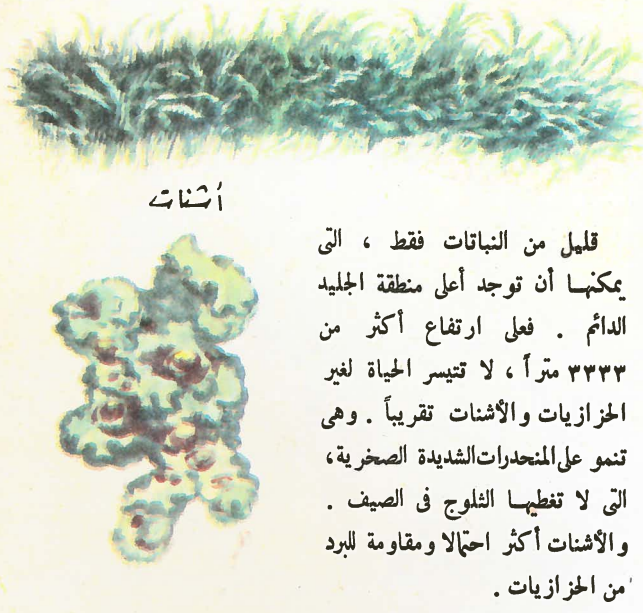 أشنات
قليل من النباتات فقط ، التى
يمكنها أن توجد أعلى منطقة الجليد
الدائم . فعلى ارتفاع أكثر من
٣٣٣٣ متراً ، لا تتيسر الحياة لغير
الحزازيات والأشنات تقريباً . وهى
تنمو على المنحدرات الشديدة الصخرية،
التى لا تغطيها الثلوج فى الصيف .
والأشنات أكثر احتمالا ومقاومة للبرد
من الحزازيات .